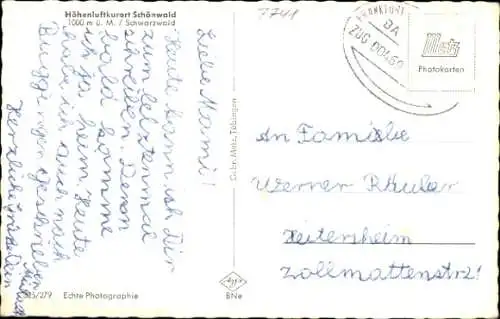 Höhenluftkurort Schönwald
1000 m ü. M. / Schwarzwald
7741
FRANKFURT
BA
ZUG 00450
Metz
Photokarten
Liebe Mami!
Heute kann ich Dir
zum letztenmal
schreiben. Denn
bald komme
ich ja heim. Heute
habe ich auch nach
geschrieben
Herzliche
An Familie
Werner
Heitersheim
Zollmattenstr 21
Gebr. Metz, Tübingen
Agfa
BNe
/279 Echte Photographie